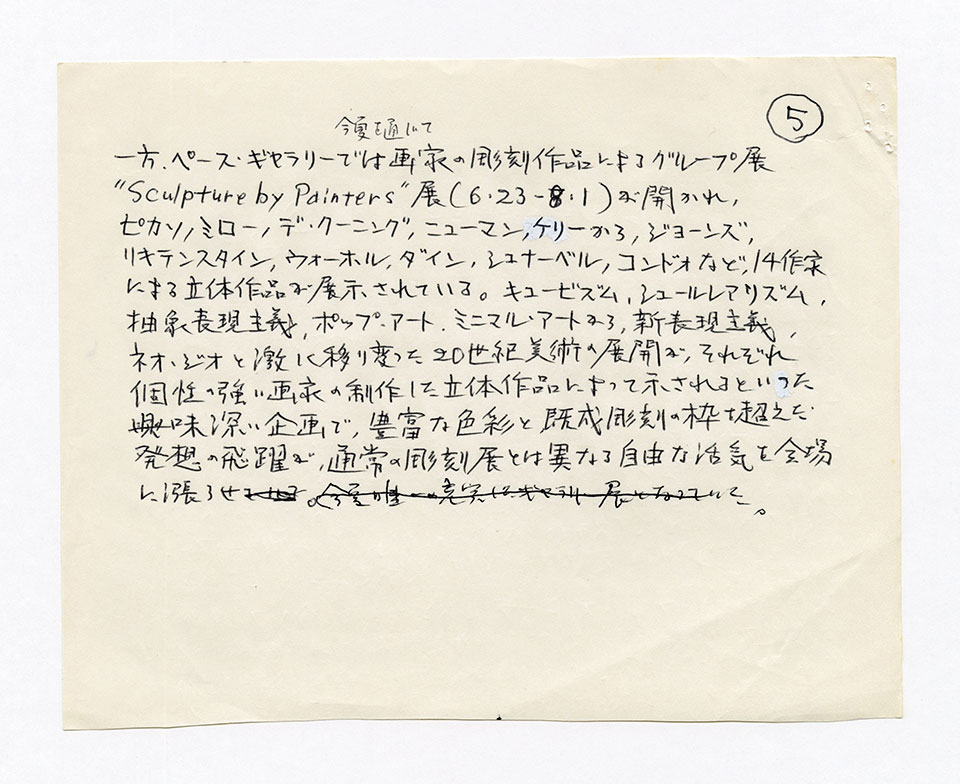 5
今夏を通して
一方、ペース・ギャラリーでは画家の彫刻作品によるグループ展
"Sculpture by Painters"展(6.23-8.1)が開かれ,
ピカソ,ミロー,デ・クーニング,ニューマン,ケリーから,ジョーンズ,
リキテンスタイン,ウォーホル,ダイン,シュナーベル,コンドオなど,14作家
による立体作品が展示されている。キュービズム,シュールレアリズム,
抽象表現主義,ポップ・アート、ミニマル・アートから,新表現主義,
ネオ・ジオと激しく移り変った20世紀美術の展開が,それぞれ
個性の強い画家の制作した立体作品によって示されるといった
興味深い企画で,豊富な色彩と既成彫刻の枠を超えた
発想の飛躍が,通常の彫刻展とは異なる自由な活気を会場
に漲らせ 今夏唯一の充実したギャラリー展となっていた。